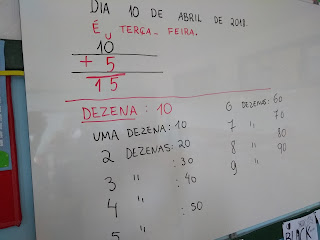 DIA 10 DE ABRIL DE 2018.
É TERÇA-FEIRA.
10
+ 5
15
DEZENA: 10
UMA DEZENA: 10
2 DEZENAS: 20
3 " : 30
4 " : 40
5 " : 50
6 DEZENAS: 60
7 " 70
8 " 80
9 " 90
BLACK